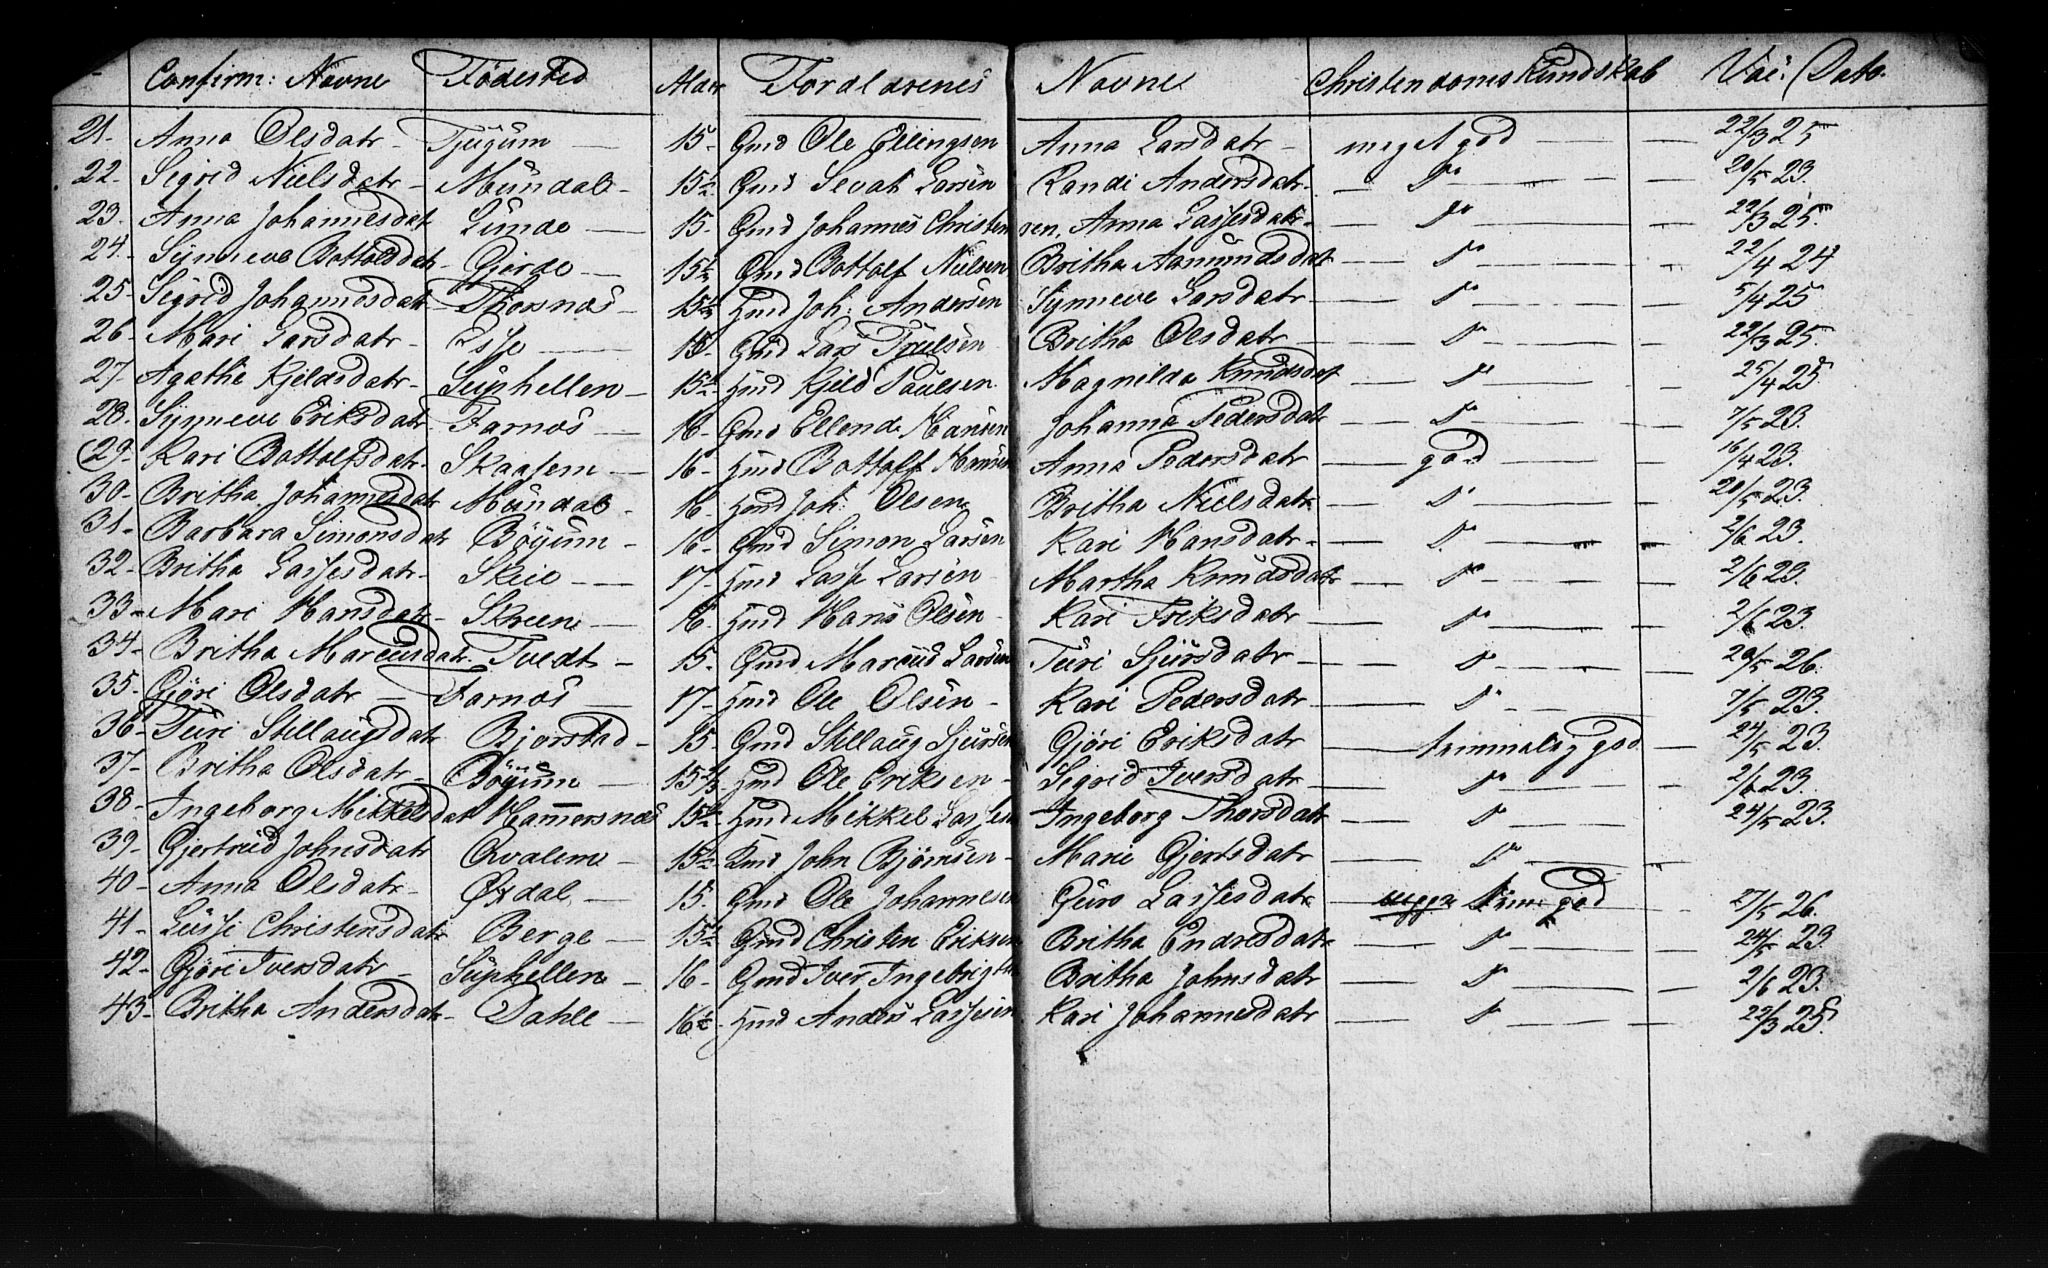 Confirm: Navne Födested Alder Forældrenes Navne Christendoms Kundskab Vac: Dato.
21. Anna Olsdatr Tjugum 15 Gmd Ole Ellingsen Anna Larsdatr meget god 22/3 25
22. Sigrid Nielsdatr Mundal 15 1/2 Gmd Sevat Larsen Randi Andersdatr D 20/5 23.
23. Anna Johannesdat Lunde 15 Gmd Johannes Christensen, Anna Lassesdatr D 22/3 25.
24. Synneve Bottolsdat Gjerde 15 1/2 Gmd Bottolf Nielsen Britha Aamundsdat D 22/4 24
25. Sigrid Johannesdatr Thorsnæs 15 1/2 Hmd Joh: Andersen Synneve Larsdatr D 5/4 25
26. Mari Larsdatr Esse 15 Gmd Lars Trulsen Britha Olsdatr D 22/3 25.
27. Agathe Kjeldsdatr Suphellen 15 1/2 Hmd Kjeld Paulsen Magnilda Knudsdat D 25/4 25
28. Synneve Eriksdatr Farnæs 16 Gmd Ellend Hansen Johanna Pedersdatr D 7/5 23.
29. Kari Bottolfsdatr Skaasem 16 Hmd Bottolf Hansen Anna Pedersdatr god 16/4 23.
30. Britha Johannesdatr Mundal 16 Hmd Joh: Olsen Britha Nielsdatr D 20/5 23.
31. Barbara Simonsdatr Böyum 16 Gmd Simon Larsen Kari Hansdatr D 2/6 23.
32. Britha Lassesdatr Skeie 17 Hmd Lasse Larsen Martha Knudsdatr D 2/6 23.
33. Mari Hansdatr Skreene 16 Hmd Hans Olsen Kari Eriksdatr D 2/6 23.
34. Britha Marcusdatr Tvedt 15. Gmd Marcus Larsen Turi Sjursdatr D 20/5 26.
35. Gjöri Olsdatr Farnæs 17 Hmd Ole Olsen Kari Pedersdatr D 7/5 23.
36. Turi Stillaugsdatr Bjorstad 15 Gmd Stillaug Sjursen Gjöri Eriksdatr temmelig god 24/5 23.
37. Britha Olsdatr Böyum 15 2/3 Hmd Ole Eriksen Sigrid Iversdatr D 2/6 23.
38. Ingeborg Mikkelsdat Hamersnæs 15 1/2 Hmd Mikkel Lassesen Ingeborg Thorsdatr D 24/5 23.
39. Gjertrud Johnsdatr Qvaleme 15 1/2 Hmd John Björnsen Marie Gjertsdatr D
40 Anna Olsdatr Øxdal 15. Gmd Ole Johannesen Guro Lassesdatr god 27/5 26.
41 Lussi Christensdatr Berge 15 1/2 Gmd Christen Eriksen Britha Endresdatr D 24/5 23
42 Gjöri Iversdatr Suphellen 16 Gmd Iver Ingebrigts Britha Johnsdatr D 2/6 23.
43 Britha Andersdatr Dahle 16 1/2 Hmd Anders Lassesen Kari Johannesdatr D 22/3 25.